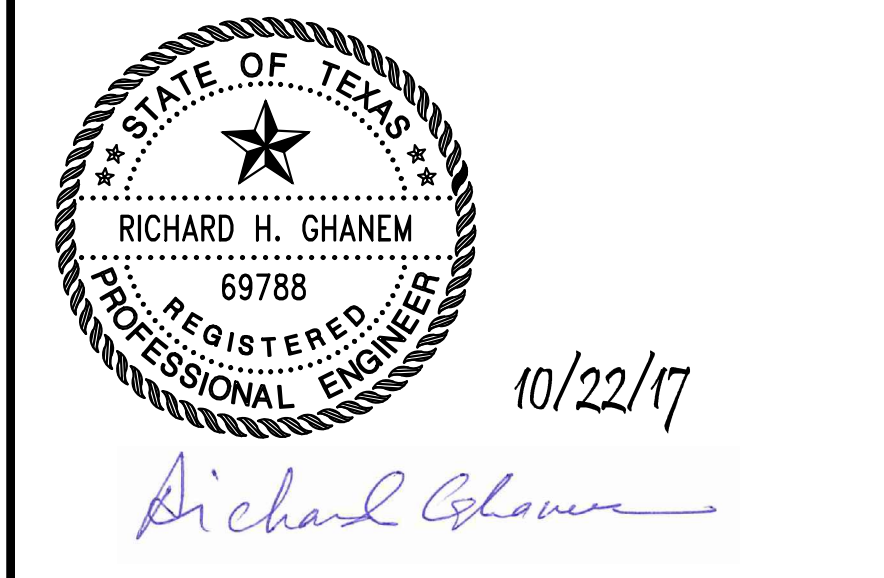 STATE OF TEXAS
RICHARD H. GHANEM
69788
REGISTERED
PROFESSIONAL ENGINEER
10/22/17
Richard Ghanem